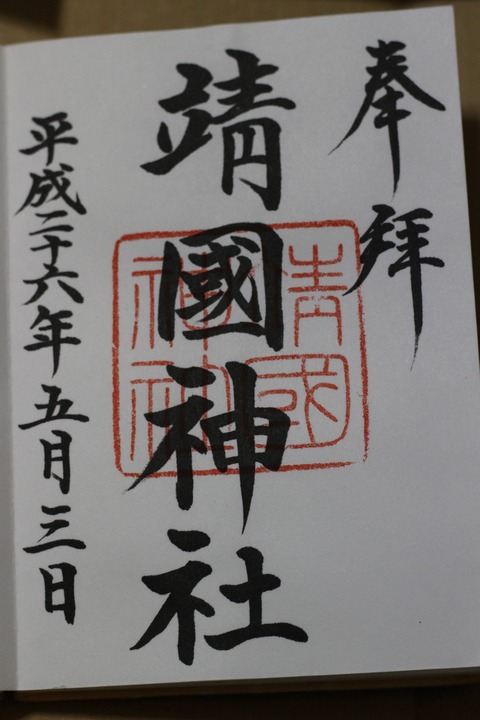 奉拝
靖國神社
靖国神社
平成二十六年五月三日